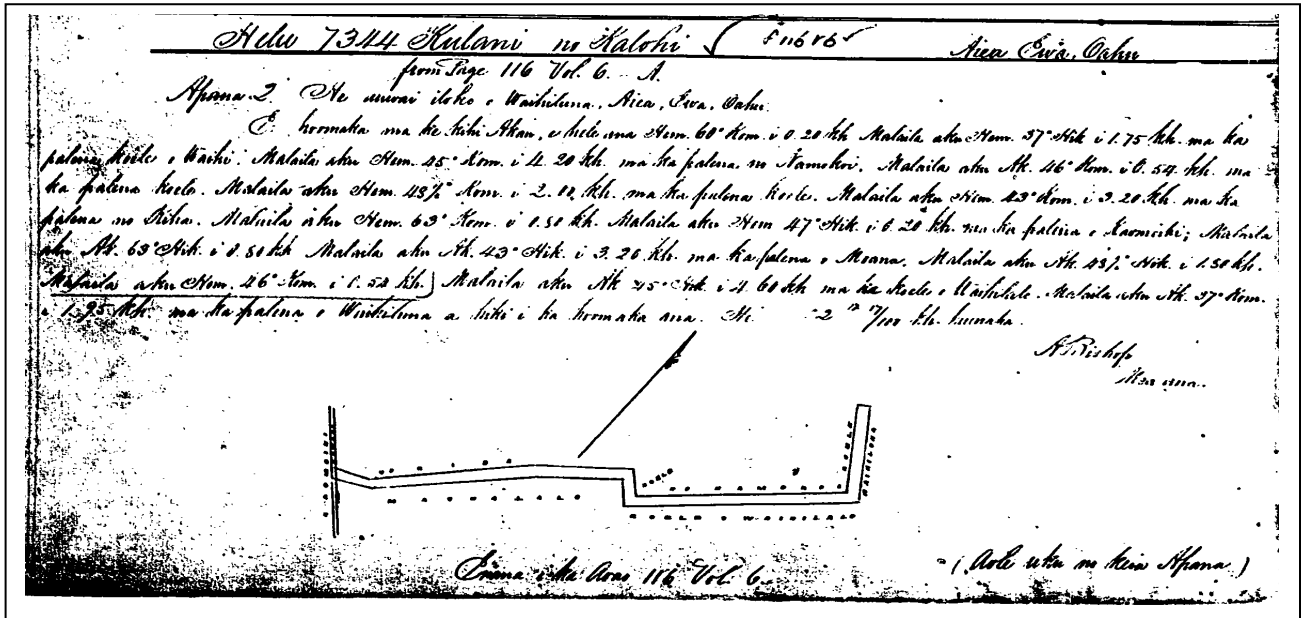 Helu 7344 Kulani no Kalohi
Aiea Ewa, Oahu
from Page 116 Vol. 6. A.
Apana 2. He auwai iloko o Waihiluna, Aiea, Ewa, Oahu.
E hoomaka ma ke kihi Akau, e hele ana Hem. 60° Kom. i 0.20 kh. Malaila aku Hem. 37° Hik i 1.75 kh. ma ka
palena koele o Waihi. Malaila aku Hem. 45° Kom. i 4.20 kh. ma ka palena no Namokoi. Malaila aku Ak. 46° Kom. i 0.54 kh. ma
ka palena koele. Malaila aku Hem. 43½° Kom. i 2.00 kh. ma ka palena koele. Malaila aku Hem. 43° Kom. i 3.20 kh. ma ka
palena no Kiha. Malaila aku Hem. 63° Kom. i 0.80 kh. Malaila aku Hem 47° Hik. i 0.20 kh. ma ka palena o Kaomoiki; Malaila
aku Ak. 63° Hik. i 0.80 kh Malaila aku Ak. 43° Hik. i 3.20 kh. ma ka palena o Moana. Malaila aku Ak. 43½° Hik. i 1.50 kh.
Malaila aku Hem. 46° Kom. i 0.54 kh. Malaila aku Ak 45° Hik. i 4.60 kh ma ka koele o Waihilalo. Malaila aku Ak. 37° Kom.
i 1.95 kh. ma ka palena o Waihiluna a hiki i ka hoomaka ana. He 2 17/100 kh. kuunaha.
A Bishop
Mea ana.
KOELE
WAIHILUNA
KOELE
NO NAMOKOI
KOELE O WAIHILALO
Emma i ka Aoao 116 Vol. 6.
(Aole uku no keia Apana)